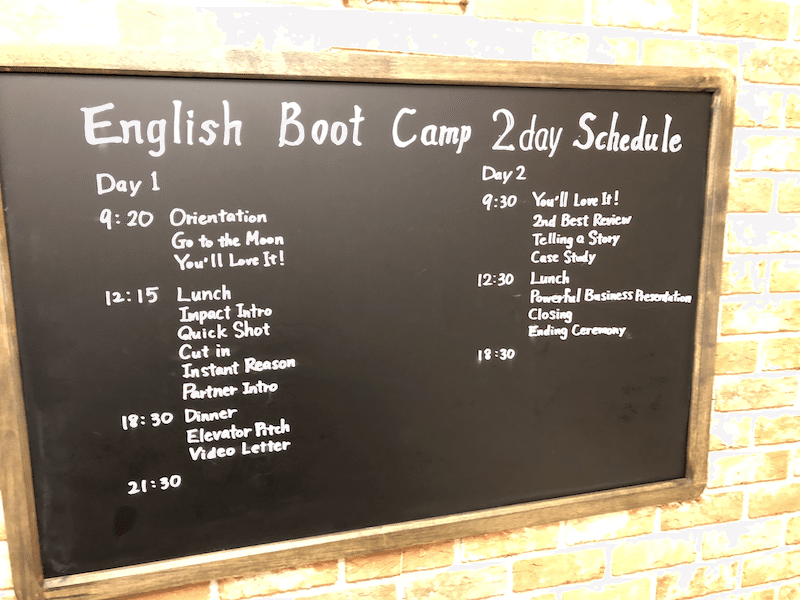 English Boot Camp 2day Schedule
Day 1
9:20 Orientation
Go to the Moon
You'll Love It!
12:15 Lunch
Impact Intro
Quick Shot
Cut in
Instant Reason
Partner Intro
18:30 Dinner
Elevator Pitch
Video Letter
21:30
Day 2
9:30 You'll Love It!
2nd Best Review
Telling a Story
Case Study
12:30 Lunch
Powerful Business Presentation
Closing
Ending Ceremony
18:30